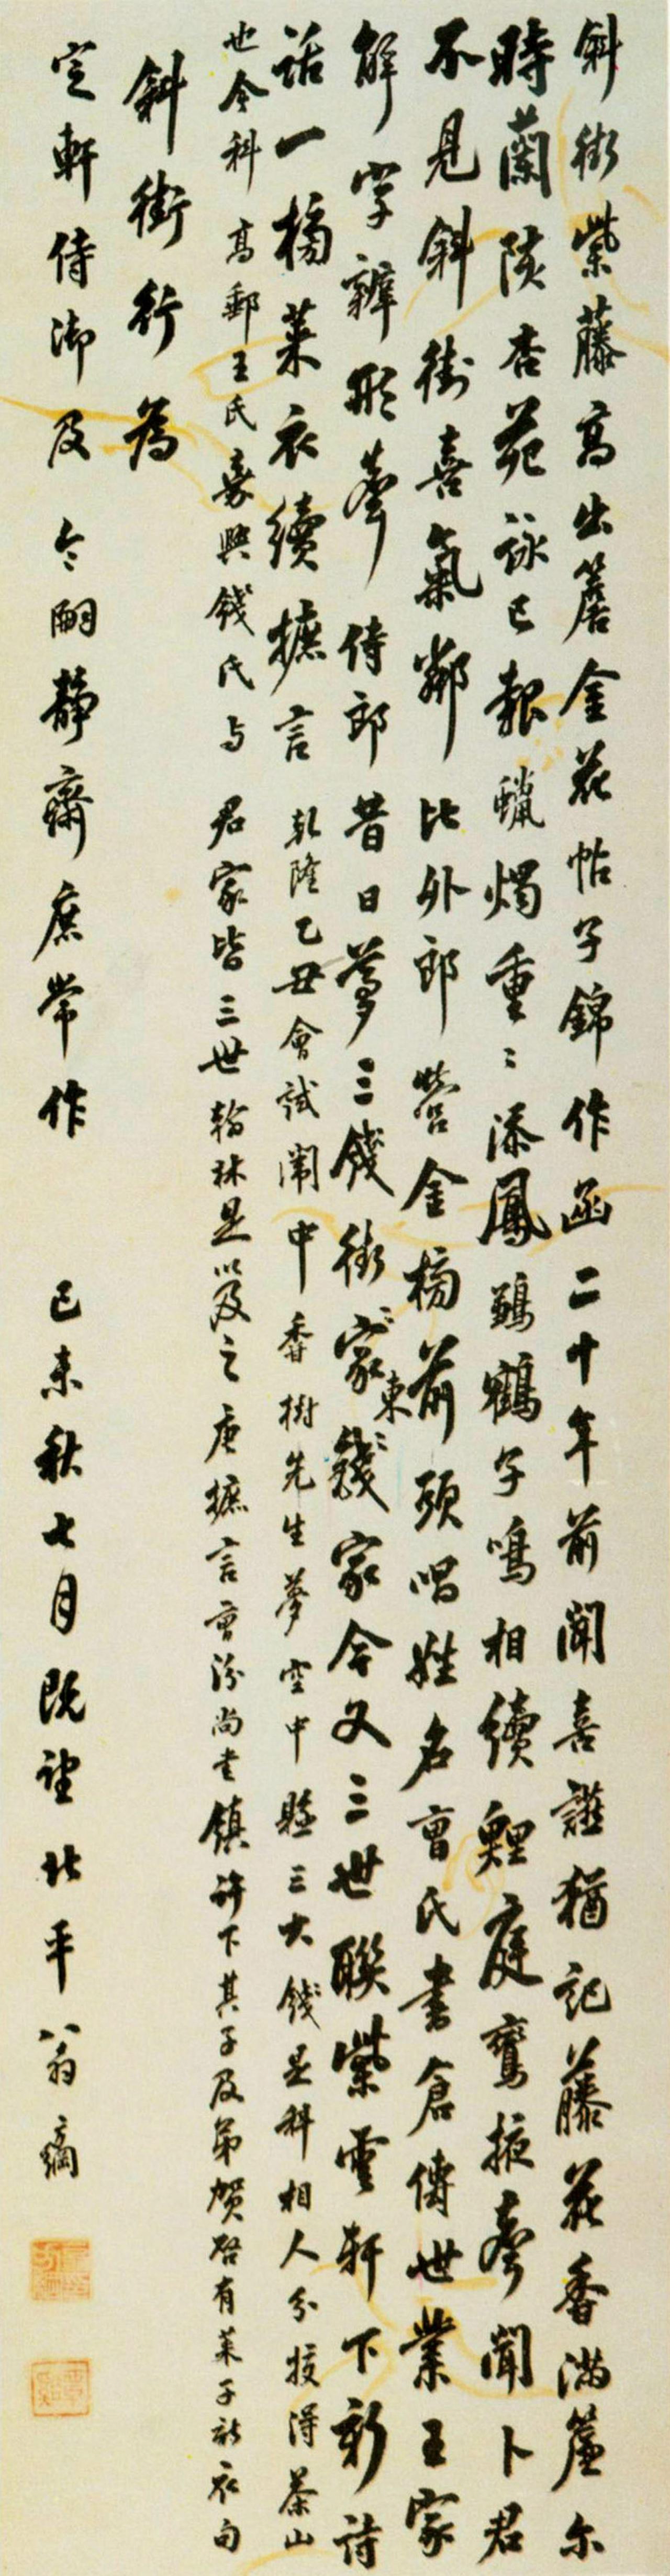 斜街紫藤高出簷金花帖子錦作函二十年前聞喜讌猶記藤花香滿簾尔
時蘭陔杏苑詠已報蠟燭重〻添鳳鷂鶴子鳴相續鯉庭鸞掖聲聞卜君
不見斜街喜氣鄰比外郎營金榜前頭唱姓名曹氏書倉傳世業王家
解字辨形聲侍郎昔日夢三錢街東錢家〻〻今又三世聯紫雲軒下新詩
話一榜萊衣續摭言 乾隆乙丑會試闈中香樹先生夢空中懸三大錢是科相人分校得茶山
也今科高郵王氏嘉興錢氏与 君家皆三世翰林是以及之唐摭言曹汾尚書鎮許下其子及弟賀啓有萊子衣句
斜街行為
定軒侍御及 令嗣靜齋庶常作 己未秋七月既望北平翁方綱